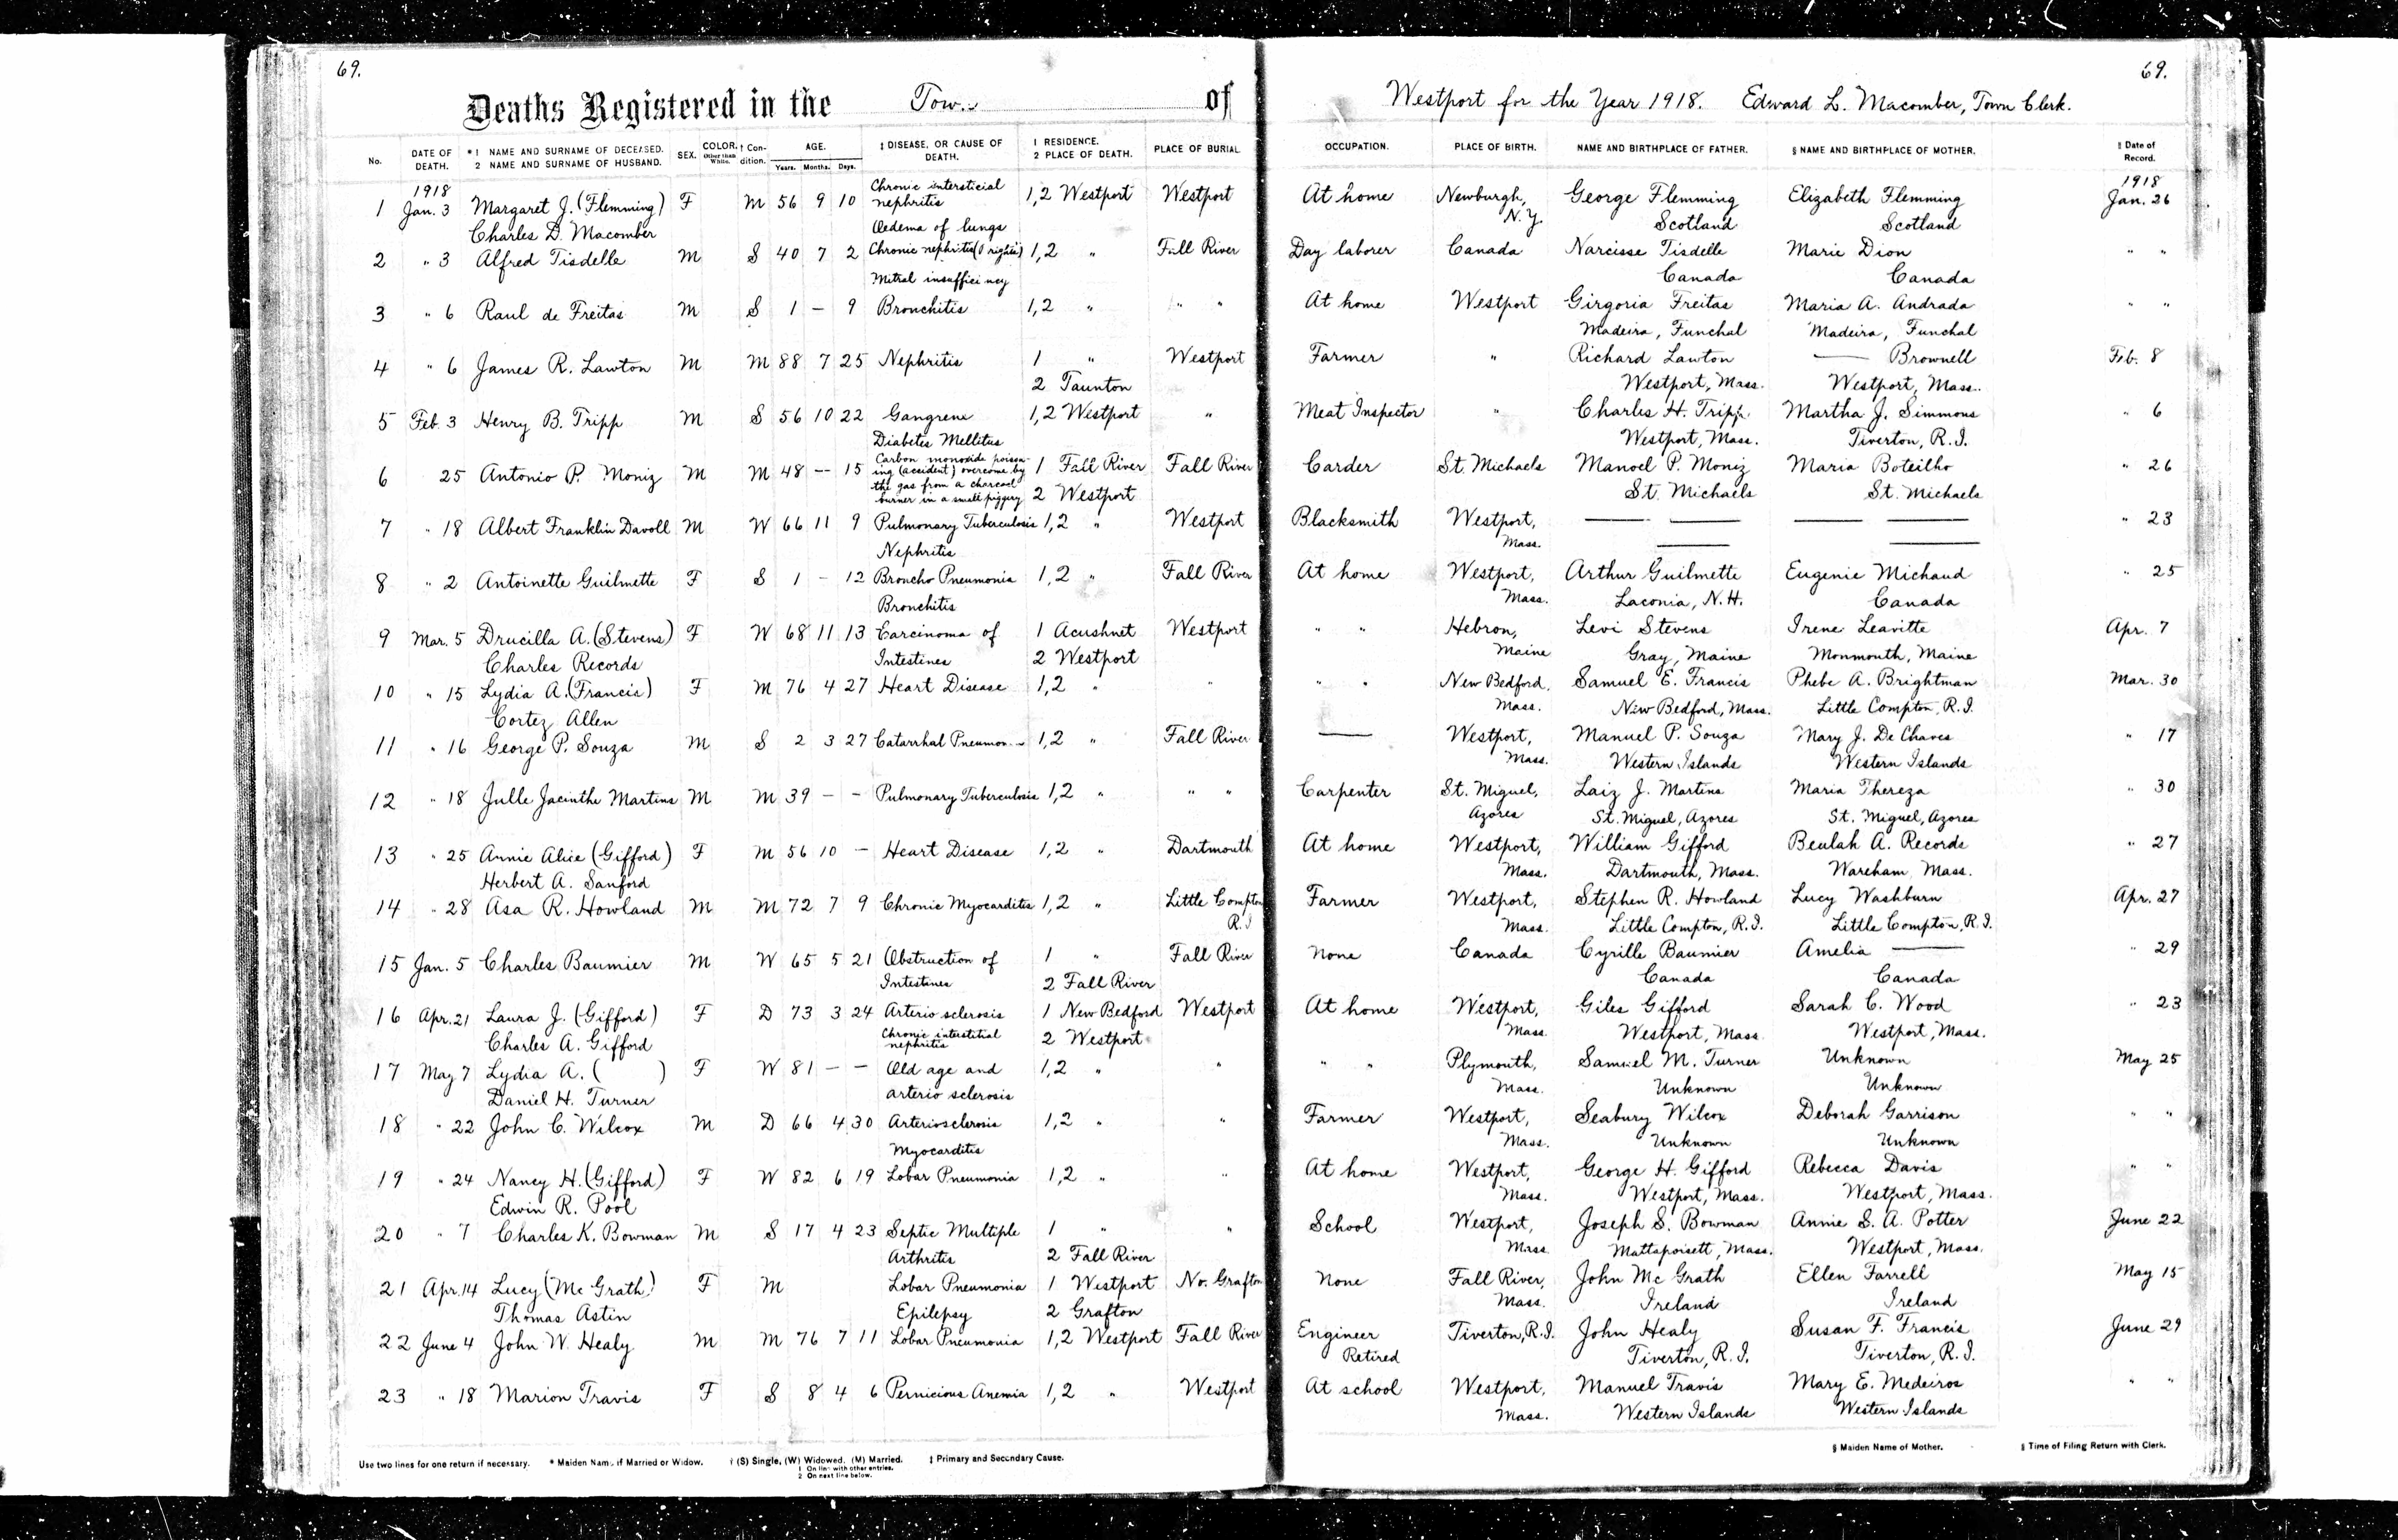 69.
69.
Deaths Registered in the Town of Westport for the Year 1918. Edward L. Macomber, Town Clerk.
No. DATE OF DEATH. *1 NAME AND SURNAME OF DECEASED. 2 NAME AND SURNAME OF HUSBAND. SEX. COLOR. Other than White. † Condition. AGE. Years. Months. Days. ‡ DISEASE, OR CAUSE OF DEATH. 1 RESIDENCE. 2 PLACE OF DEATH. PLACE OF BURIAL OCCUPATION. PLACE OF BIRTH. NAME AND BIRTHPLACE OF FATHER. § NAME AND BIRTHPLACE OF MOTHER. ‖ Date of Record.
1918 Chronic intersticial 1918
1 Jan. 3 Margaret J. (Flemming) F M 56 9 10 nephritis 1,2 Westport Westport At home Newburgh, George Flemming Elizabeth Flemming Jan. 26
Charles D. Macomber Oedema of lungs N.Y. Scotland Scotland
2 " 3 Alfred Tisdelle M S 40 7 2 Chronic nephritis (Brights) 1,2 " Fall River Day laborer Canada Narcisse Tisdelle Marie Dion " "
Mitral insufficiency Canada Canada
3 " 6 Raul de Freitas M S 1 – 9 Bronchitis 1,2 " " " At home Westport Girgoria Freitas Maria A. Andrada " "
Madeira, Funchal Madeira, Funchal
4 " 6 James R. Lawton M M 88 7 25 Nephritis 1 " Westport Farmer " Richard Lawton — Brownell Feb. 8
2 Taunton Westport, Mass. Westport, Mass.
5 Feb. 3 Henry B. Tripp M S 56 10 22 Gangrene 1,2 Westport " Meat Inspector " Charles H. Tripp Martha J. Simmons " 6
Diabetes Mellitus Westport, Mass. Tiverton, R.I.
Carbon monoxide poison-
6 25 Antonio P. Moniz M M 48 – 15 ing (accident) overcome by 1 Fall River Fall River Carder St. Michaels Manoel P. Moniz Maria Boteilho " 26
the gas from a charcoal
burner in a small piggery 2 Westport St. Michaels St. Michaels
7 " 18 Albert Franklin Davoll M W 66 11 9 Pulmonary Tuberculosis 1,2 " Westport Blacksmith Westport, — — — — " 23
Nephritis Mass. — —
8 " 2 Antoinette Guilmette F S 1 – 12 Broncho Pneumonia 1,2 " Fall River At home Westport, Arthur Guilmette Eugenie Michaud " 25
Bronchitis Mass. Laconia, N.H. Canada
9 Mar. 5 Drucilla A. (Stevens) F W 68 11 13 Carcinoma of 1 Acushnet Westport " " Hebron, Levi Stevens Irene Leavitte Apr. 7
Charles Records Intestines 2 Westport Maine Gray, Maine Monmouth, Maine
10 " 15 Lydia A. (Francis) F M 76 4 27 Heart Disease 1,2 " " " " New Bedford, Samuel E. Francis Phebe A. Brightman Mar. 30
Cortez Allen Mass. New Bedford, Mass. Little Compton, R.I.
11 " 16 George P. Souza M S 2 3 27 Catarrhal Pneumonia 1,2 " Fall River — Westport, Manuel P. Souza Mary J. De Chaves " 17
Mass. Western Islands Western Islands
12 " 18 Julle Jacinthe Martins M M 39 – – Pulmonary Tuberculosis 1,2 " " " Carpenter St. Miguel, Laiz J. Martins Maria Thereza " 30
Azores St. Miguel, Azores St. Miguel, Azores
13 " 25 Annie Alice (Gifford) F M 56 10 – Heart Disease 1,2 " Dartmouth At home Westport, William Gifford Beulah A. Records " 27
Herbert A. Sanford Mass. Dartmouth, Mass. Wareham, Mass.
14 " 28 Asa R. Howland M M 72 7 9 Chronic Myocarditis 1,2 " Little Compton Farmer Westport, Stephen R. Howland Lucy Washburn Apr. 27
R.I Mass. Little Compton, R.I. Little Compton, R.I.
15 Jan. 5 Charles Baumier M W 65 5 21 Obstruction of 1 " Fall River None Canada Cyrille Baumier Amelia — " 29
Intestines 2 Fall River Canada Canada
16 Apr. 21 Laura J. (Gifford) F D 73 3 24 Arterio sclerosis 1 New Bedford Westport At home Westport, Giles Gifford Sarah C. Wood " 23
Charles A. Gifford Chronic interstitial nephritis 2 Westport Mass. Westport, Mass. Westport, Mass.
17 May 7 Lydia A. ( ) F W 81 – – Old age and 1,2 " " " " Plymouth, Samuel M. Turner Unknown May 25
Daniel H. Turner arterio sclerosis Mass. Unknown Unknown
18 " 22 John C. Wilcox M D 66 4 30 Arteriosclerosis 1,2 " " Farmer Westport, Seabury Wilcox Deborah Garrison " "
Myocarditis Mass. Unknown Unknown
19 " 24 Nancy H. (Gifford) F W 82 6 19 Lobar Pneumonia 1,2 " " At home Westport, George H. Gifford Rebecca Davis " "
Edwin R. Pool Mass. Westport, Mass. Westport, Mass.
20 " 7 Charles K. Bowman M S 17 4 23 Septic Multiple 1 " " School Westport, Joseph S. Bowman Annie S. A. Potter June 22
Arthritis 2 Fall River Mass. Mattapoisett, Mass. Westport, Mass.
21 Apr. 14 Lucy (Mc Grath) F M Lobar Pneumonia 1 Westport No. Grafton None Fall River, John Mc Grath Ellen Farrell May 15
Thomas Astin Epilepsy 2 Grafton Mass. Ireland Ireland
22 June 4 John W. Healy M M 76 7 11 Lobar Pneumonia 1,2 Westport Fall River Engineer Tiverton, R.I. John Healy Susan F. Francis June 29
Retired Tiverton, R.I. Tiverton, R.I.
23 " 18 Marion Travis F S 8 4 6 Pernicious Anemia 1,2 " Westport At school Westport, Manuel Travis Mary E. Medeiros " "
Mass. Western Islands Western Islands
Use two lines for one return if necessary. * Maiden Name if Married or Widow. † (S) Single, (W) Widowed, (M) Married. ‡ Primary and Secondary Cause. § Maiden Name of Mother. ‖ Time of Filing Return with Clerk.
1 On line with other entries.
2 On next line below.